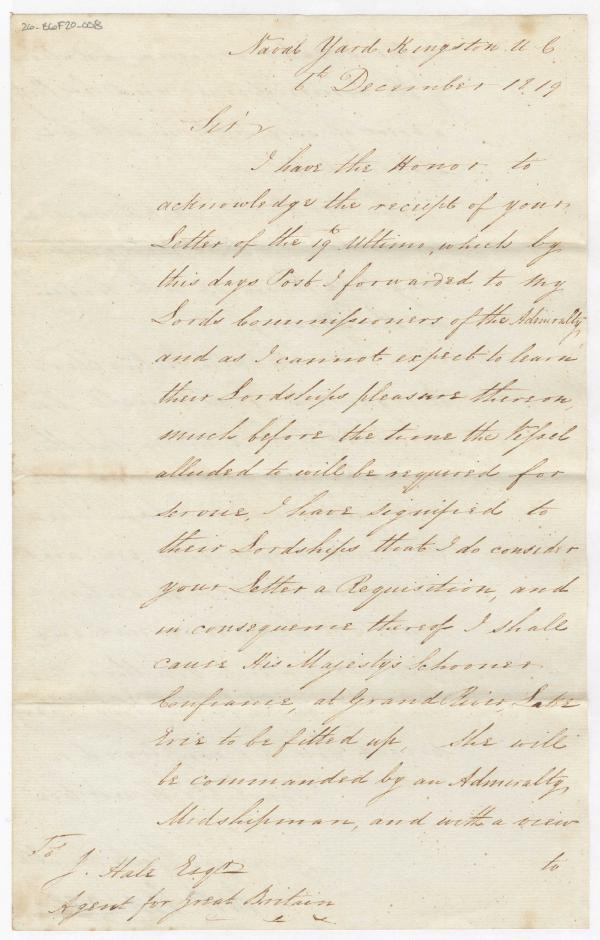 26-B6F20-008
Naval Yard Kingston U C
6th December 1819
Sir
I have the Honor to
acknowledge the receipt of your
Letter of the 19th Ultimo, which by
this days Post I forwarded to My
Lords Commissioners of the Admiralty,
and as I cannot expect to learn
their Lordships pleasure thereon,
much before the time the Vessel
alluded to will be required for
service, I have signified to
their Lordships that I do consider
your Letter a Requisition, and
in consequence thereof I shall
cause His Majesty's Schooner
Confiance, at Grand River Lake
Erie to be fitted up, She will
be commanded by an Admiralty
Midshipman, and with a view
to
To
J. Hale Esqr
Agent for Great Britain